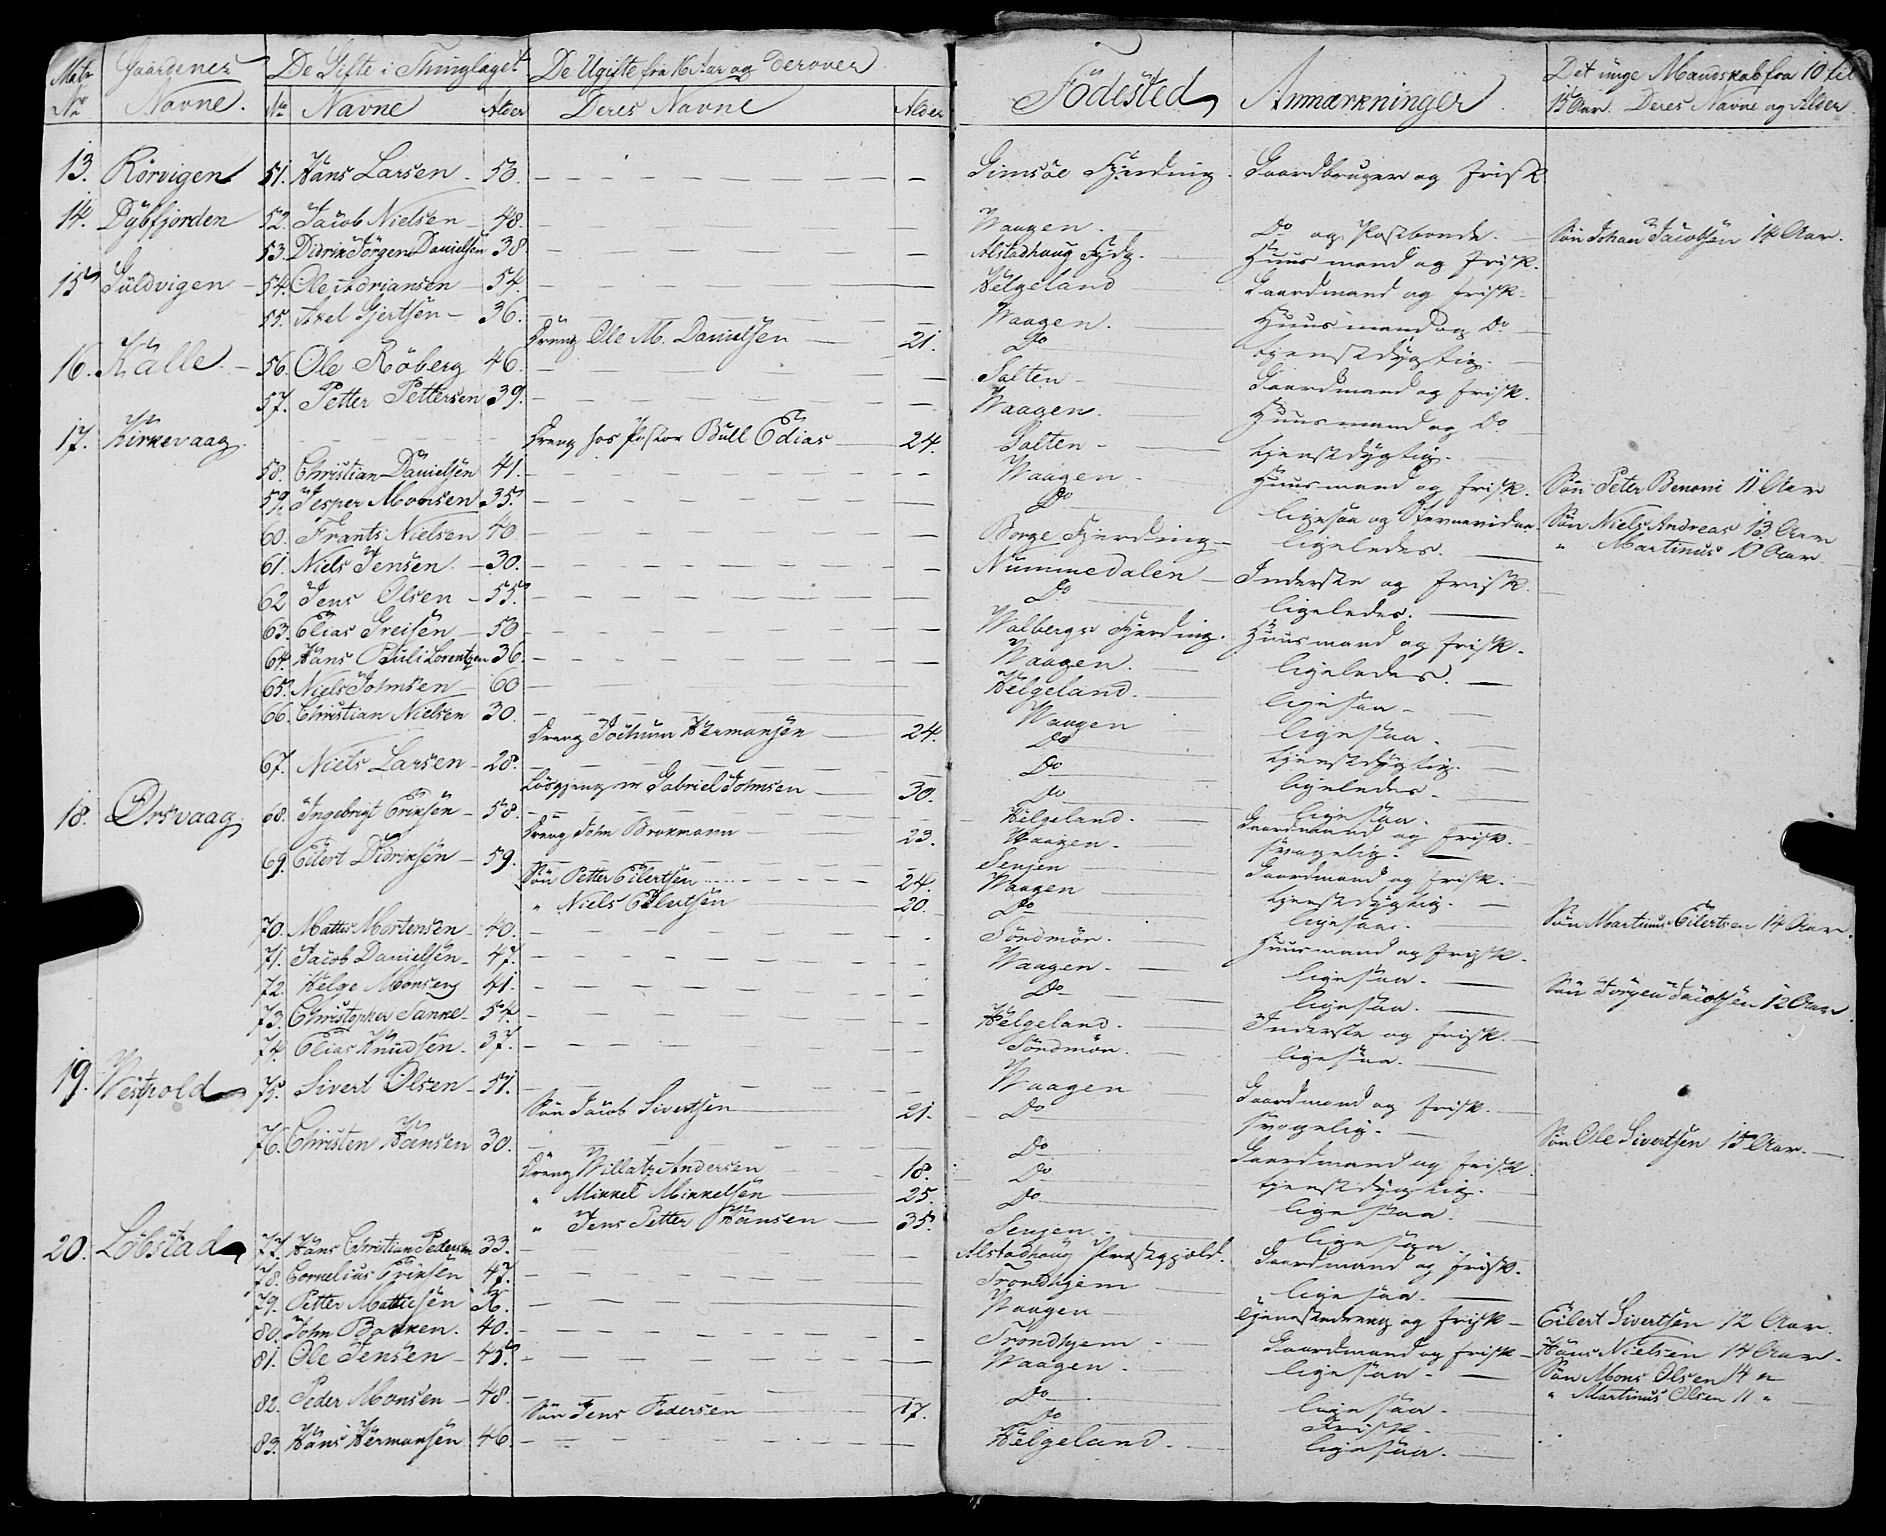 Matr No Gaardenes Navne. De Gifte i Thinglaget No Navne Alder De Ugifte fra 16 Aar og derover Deres Navne Alder Födested Anmærkninger Det unge Mandskab fra 10 til 15 Aar. Deres Navne og Alder
13. Rörvigen 51. Hans Larsen 50. Gimsöe Fjerding. Gaardbruger og frisk
14. Dybfjorden 52. Jacob Nielsen 48. Waagen. Do og Postbonde. Sön Johan Jacobsen 14 Aar.
53. Didrik Jörgen Danielsen 38 Alstadhaug Fjdg. Huusmand og frisk.
15 Guldvigen 54. Ole Adriansen 54. Helgeland Gaardmand og frisk.
55. Axel Gjertsen 36. Waagen. Huusmand og Do
Dreng Ole M. Danielsen 21. Do tjenstdygtig.
16. Kalle 56. Ole Röberg 46. Salten Gaardmand og frisk.
57. Petter Pettersen 39. Waagen. Huusmand og Do
17. Kirkevaag Dreng hos Pastor Bull Edias 24. Salten tjenstdygtig.
58. Christian Danielsen 41. Waagen Huusmand og frisk. Sön Peter Benoni 11 Aar
59. Jesper Monsen 35. Do ligesaa og Stevnevidne. Sön Niels Andreas 13 Aar
" Martinus 10 Aar
60. Frants Nielsen 40. Borge Fjerding ligeledes.
61. Niels Jensen. 30. Nummedalen Inderste og frisk.
62 Jens Olsen 55. Do ligeledes.
63. Elias Greisen 50 Walbergs Fjerding. Huusmand og frisk.
64. Hans Pauli Lorentzen 36. Waagen. ligeledes.
65. Niels Johnsen 60 Helgeland. ligesaa
66. Christian Nielsen 30. Waagen ligesaa.
Dreng Jochum Hermansen 24. Do tjenstdygtig.
67. Niels Larsen 28. Do ligeledes.
Lösgjenger Gabriel Johnsen 30. Do ligesaa.
18. Örsvaag 68. Ingebrigt Eriksen 58. Helgeland. Gaardmand og frisk.
Dreng John Brokmann 23. Waagen. svagelig.
69. Eilert Didriksen 59. Senjen Gaardmand og frisk.
Sön Petter Eilertsen 24. Waagen tjenstdygtig.
" Niels Eilertsen 20. Do ligesaa. Sön Martinus Eilertsen 14 Aar.
70. Mattis Mortensen 40. Söndmör. Huusmand og frisk.
71. Jacob Danielsen 47. Waagen. ligesaa. Sön Jörgen Jacobsen 12 Aar.
72. Helge Monsen 41. Do ligesaa.
73. Christopher Sanne 54. Helgeland. Inderste og frisk.
74. Elias Knudsen. 37. Söndmör. ligesaa.
19. Westpold 75. Sivert Olsen 51. Waagen Gaardmand og frisk.
Sön Jacob Sivertsen 21. Do svagelig. Sön Ole Sivertsen 15 Aar.
76. Christen Hansen 30. Do Gaardmand og frisk.
Dreng Willatz Andersen 18. Do tjenstdygtig.
" Mikkel Mikkelsen 25. Do ligesaa.
" Jens Petter Hansen 35. Senjen. ligesaa.
20. Löbstad 77. Hans Christian Pedersen 33. Alstadhaug Præstegjeld. Gaardmand og frisk.
78. Cornelius Eriksen 47. Trondhjem ligesaa.
79. Petter Mattisen Waagen Tjenestedreng og frisk Eilert Sivertsen 12 Aar.
80. John Bakken. 40. Trondhjem Gaardmand og frisk Hans Nielsen 14 Aar.
81. Ole Jensen 45. Waagen. ligesaa. Sön Mons Olsen 14 "
" Martinus Olsen 11 "
82. Peder Monsen 48. Do ligesaa.
Sön Jens Pedersen 17. Do Frisk.
83. Hans Hermansen 46. Helgeland. ligesaa.